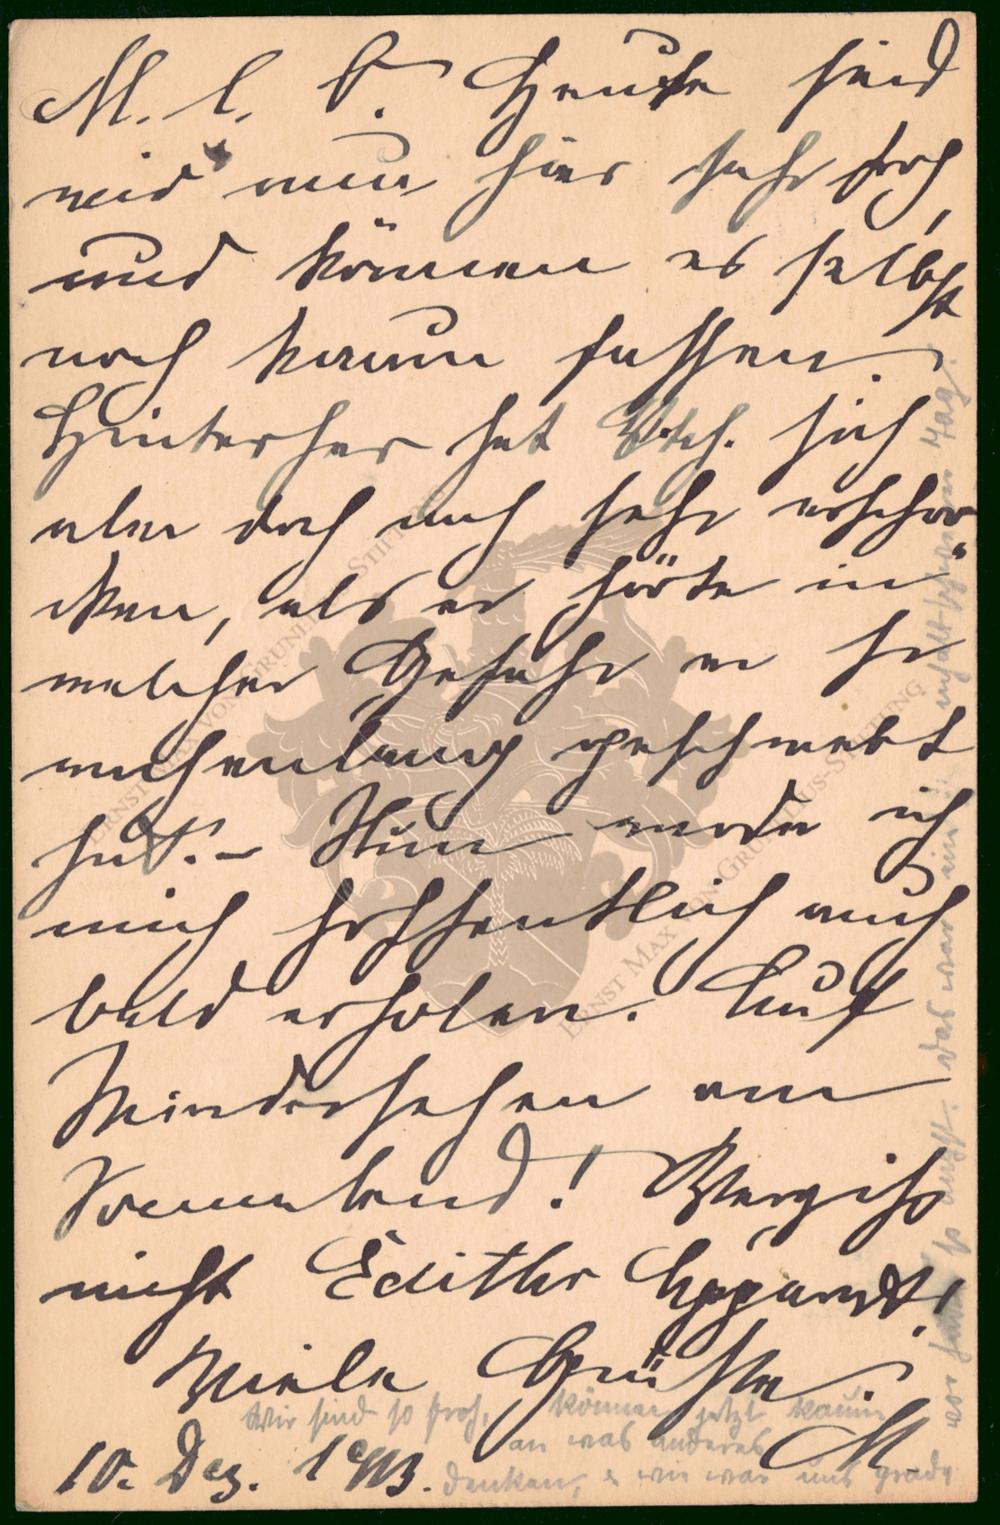 M. l. O. Heute sind
wir nun hier sehr froh
und können es selbst
noch kaum fassen.
Hinterher hat sich
aber doch auch sehr erschro-
cken, als er hörte in
welcher Gefahr er so
wochenlang geschwebt
hat. – Nun werde ich
mich hoffentlich auch
bald erholen. Auf
Wiedersehen am
Sonnabend! Vergiß
nicht Ediths
Viele Grüße.
M.
10. Dez. 1913.
Wir sind so froh, können jetzt kaum
an was anderes
denken, wie war uns grade
vor so angst. das war ein Tag.
ERNST MAX VON GRUNELIUS-STIFTUNG
ERNST MAX VON GRUNELIUS-STIFTUNG